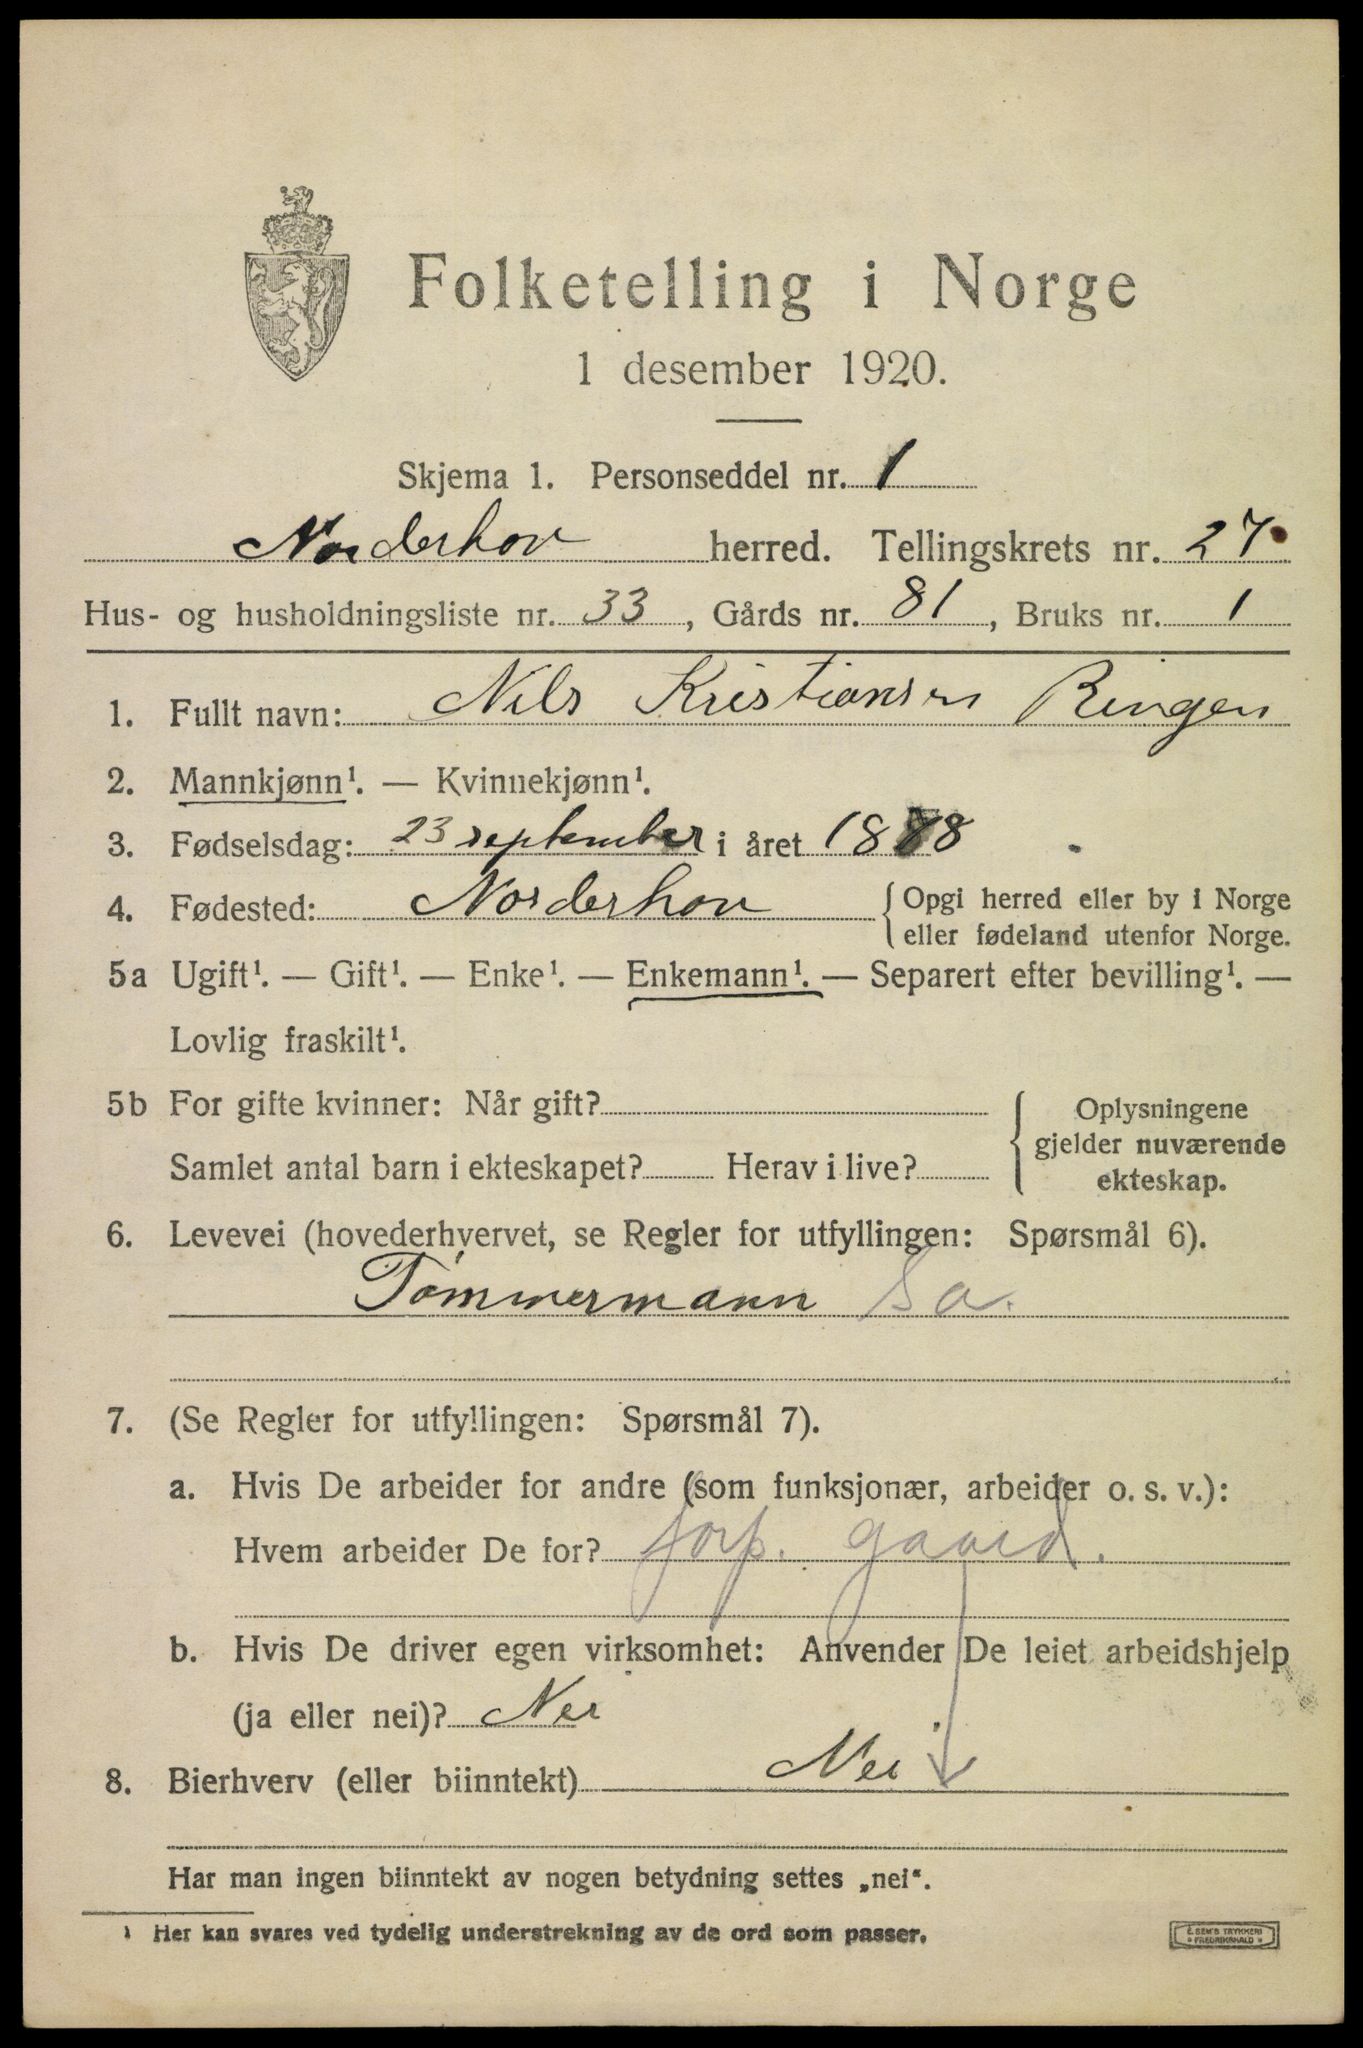 Folketelling i Norge
1 desember 1920.
Skjema 1. Personseddel nr. 1
Norderhov herred. Tellingskrets nr. 27
Hus- og husholdningsliste nr. 33, Gårds nr. 81, Bruks nr. 1
1. Fullt navn: Nils Kristiansen Ringen
2. Mannkjønn¹. — Kvinnekjønn¹.
3. Fødselsdag: 23 september i året 1888
4. Fødested: Norderhov { Opgi herred eller by i Norge
eller fødeland utenfor Norge.
5a Ugift¹. — Gift¹. — Enke¹. — Enkemann¹. — Separert efter bevilling¹. —
Lovlig fraskilt¹.
5b For gifte kvinner: Når gift?
Samlet antal barn i ekteskapet? Herav i live?
{ Oplysningene
gjelder nuværende
ekteskap.
6. Levevei (hovederhvervet, se Regler for utfyllingen: Spørsmål 6).
Tømmermann Sa.
7. (Se Regler for utfyllingen: Spørsmål 7).
a. Hvis De arbeider for andre (som funksjonær, arbeider o. s. v.):
Hvem arbeider De for? forp. gaard.
b. Hvis De driver egen virksomhet: Anvender De leiet arbeidshjelp
(ja eller nei)? Nei
8. Bierhverv (eller biinntekt) Nei
Har man ingen biinntekt av nogen betydning settes „nei“.
¹ Her kan svares ved tydelig understrekning av de ord som passer.
E. SEM'S TRYKKERI
* FREDRIKSHALD *